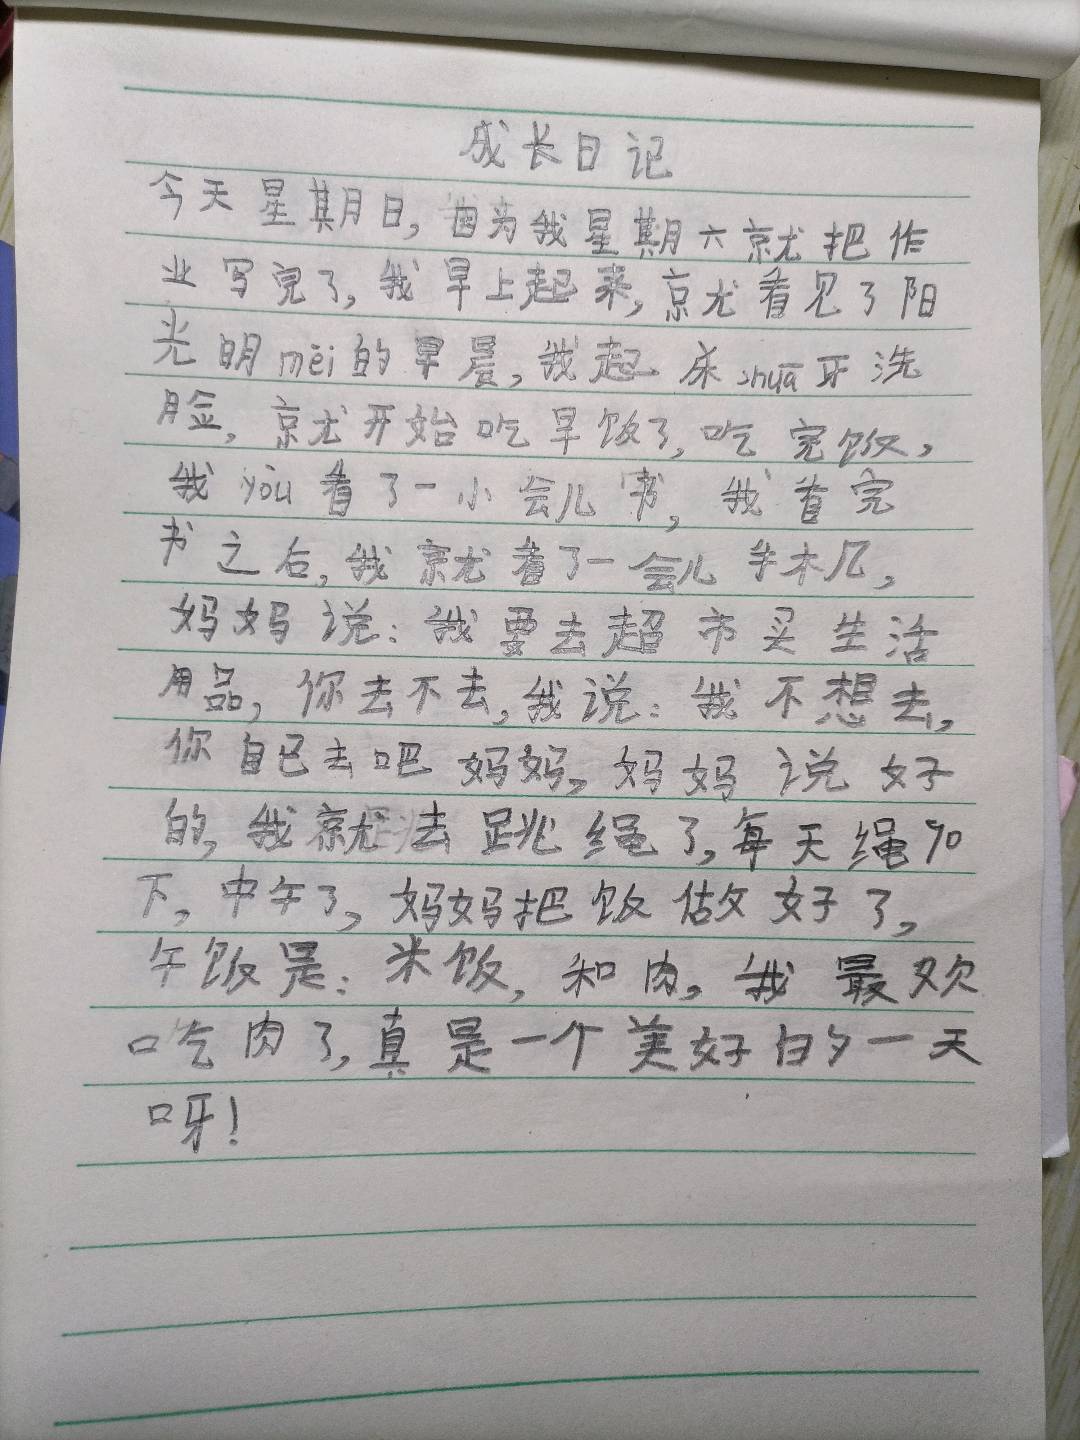 成长日记
今天星期日,因为我星期六就把作
业写完了,我早上起来,就看见了阳
光明mèi的早晨,我起床shuā牙洗
脸,就开始吃早饭了,吃完饭,
我yòu看了一小会儿书,我看完
书之后,我就看了一会儿手机,
妈妈说:我要去超市买生活
用品,你去不去,我说:我不想去,
你自己去吧妈妈,妈妈说好
的,我就去跳绳了,每天绳90
下,中午了,妈妈把饭做好了,
午饭是:米饭,和肉,我最欢
吃肉了,真是一个美好的一天
呀!